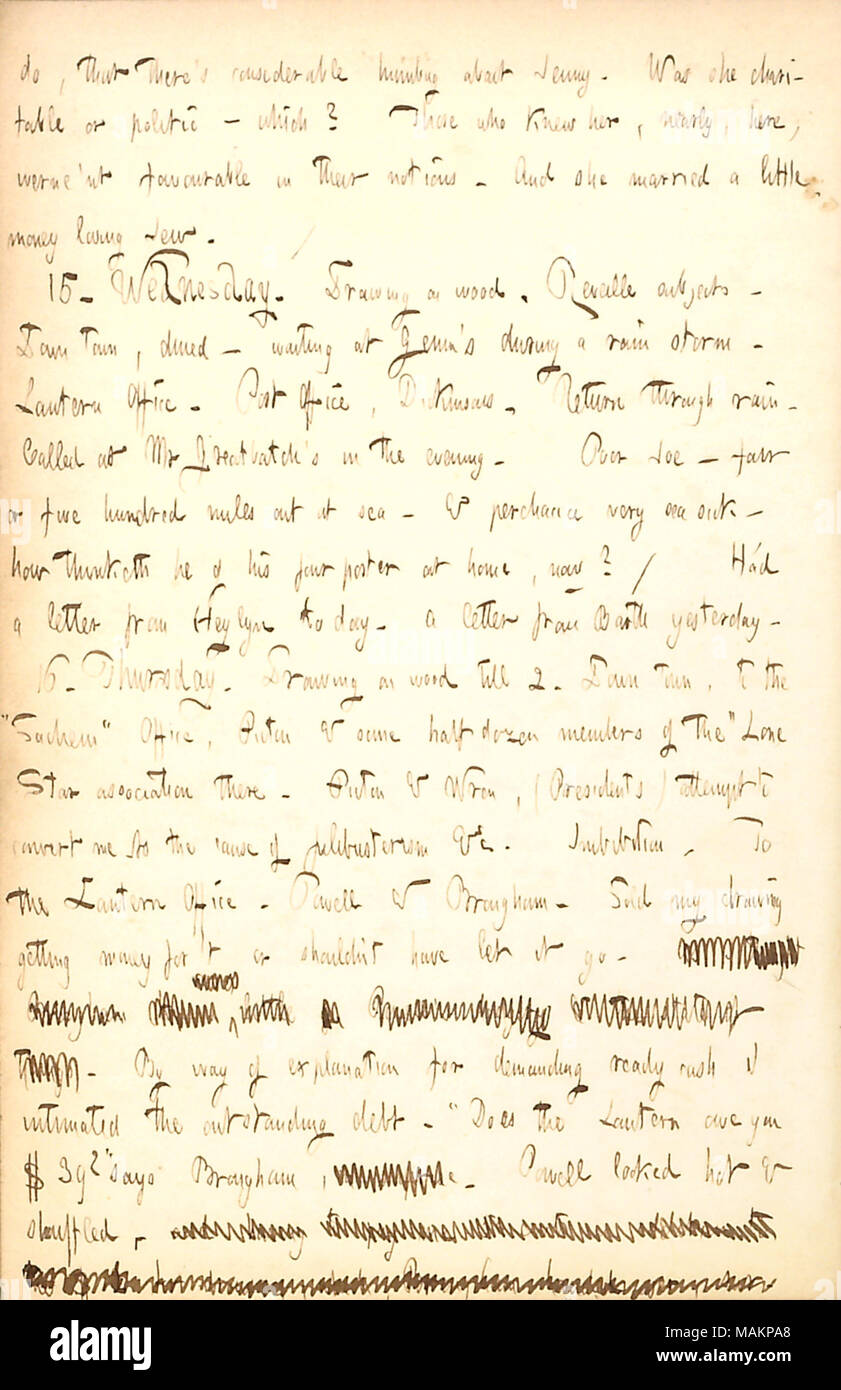 do, that there's considerable humbug about Jenny. Was she chari-
table or politic — which? Those who knew her, nearly, here,
werne'nt favourable in their notions. And she married a little
money loving Jew.
15. Wednesday. Drawing on wood. Reveille subjects —
Down town, dined — waiting at Genin's during a rain storm —
Lantern Office. Post Office, Dickinsons. Return through rain.
Called at Mr Greatbatch's in the evening. Poor Joe — four
or five hundred miles out at sea — & perchance very sea sick —
how thinketh he of his four poster at home, now? / Had
a letter from Heylyn to day. a letter from Barth yesterday —
16. Thursday. Drawing on wood till 2. Down town, to the
"Sachem" Office, Picton & some half dozen members of the "Lone
Star association there. Picton & Wren, (Presidents) attempt to
convert me to the cause of filibusterism &c. Imbibition. To
the Lantern Office. Powell & Brougham. Sold my drawing
getting money for 't or shouldn't have let it go.
By way of explanation for demanding ready cash I
intimated the outstanding debt — "Does the Lantern owe you
$ 39?" says Brougham, Powell looked hot &
shuffled,
alamy
Image ID: MAKPA8
www.alamy.com